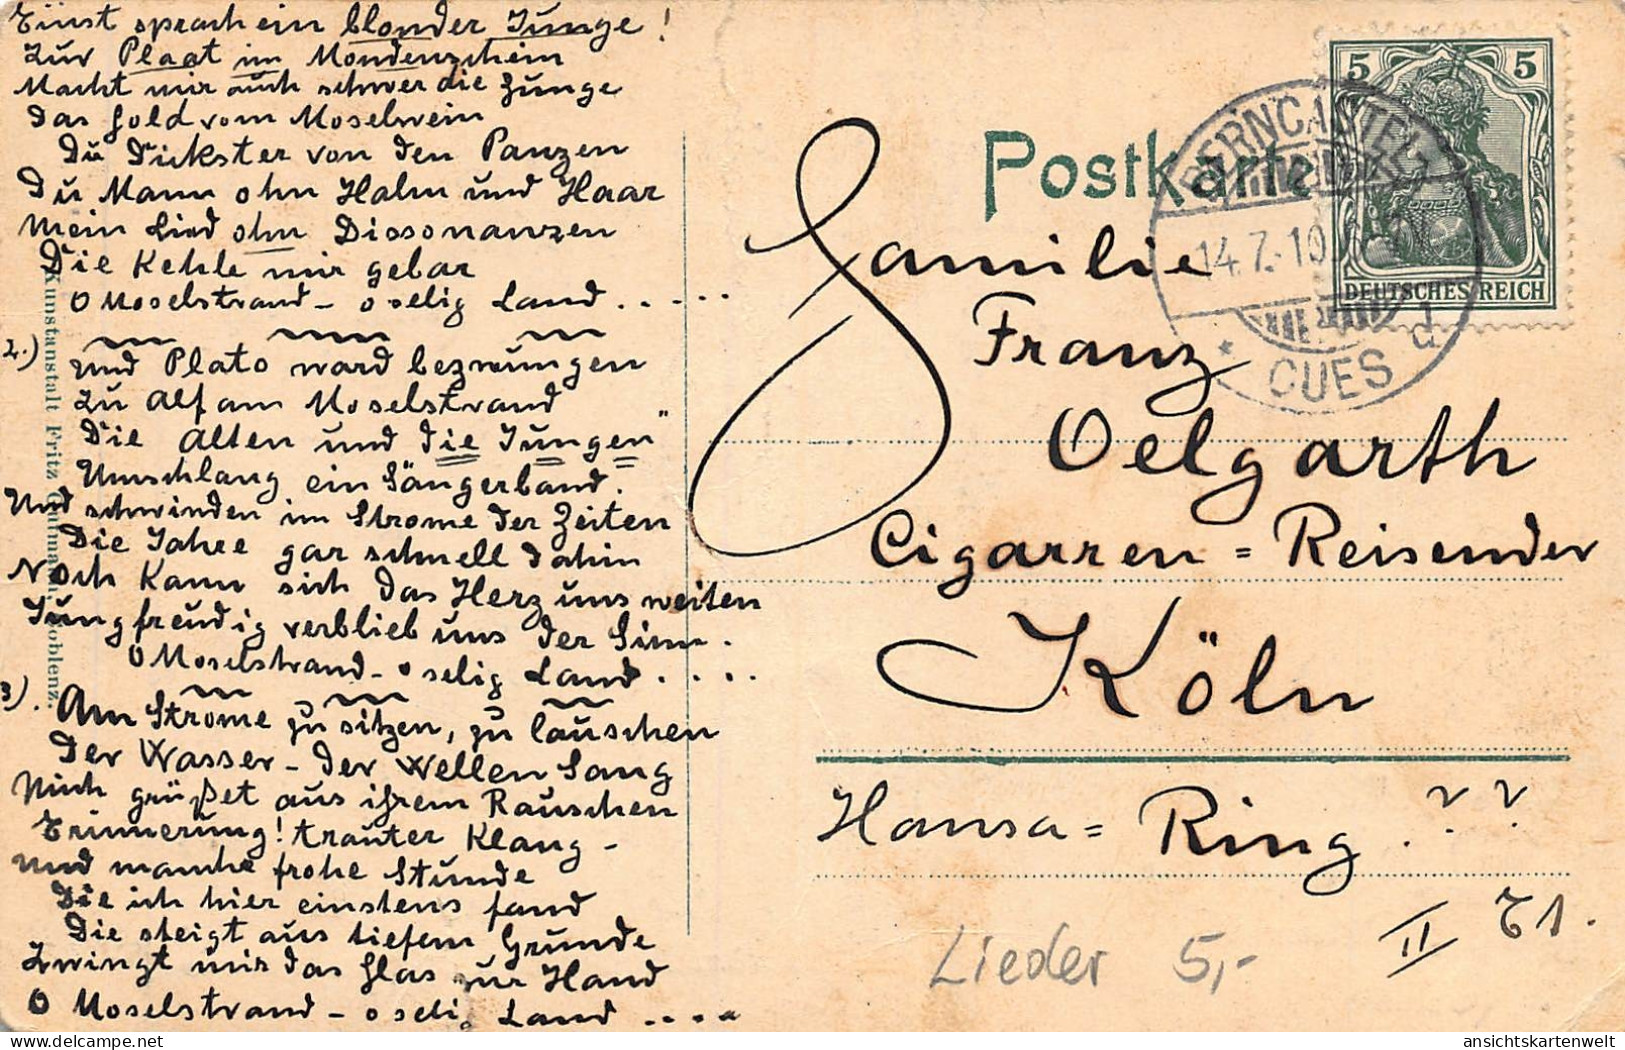 Einst sprach ein blonder Junge!
Zur Plaat im Mondenschein
Macht mir auch schwer die Zunge
Das Gold vom Moselwein
Du Dickster von den Panzen
Du Mann ohn Halm und Haar
Mein Lied ohn Dissonanzen
Die Kehle mir gebar
O Moselstrand - o selig Land . . . . .
2.) und Plato ward bezwungen
Zu Alf am Moselstrand
Die Alten und die Jungen"
Umschlang ein Sängerband.
Und schwinden im Strome der Zeiten
Die Jahre gar schnell dahin
Noch kann sich das Herz uns weiten
Jungfreudig verblieb uns der Sinn.
O Moselstrand - o selig Land . . . .
3). Am Strome zu sitzen, zu lauschen
Der Wasser - der Wellen Sang
Mich grüßet aus ihrem Rauschen
Erinnerung! trauter Klang -
und manche frohe Stunde
Die ich hier einstens fand
Die steigt aus tiefem Grunde
Zwingt mir das Glas zur Hand
O Moselstrand - o selig Land . . . .
Kunstanstalt Fritz Gutmann, Coblenz.
Postkarte
5 5
DEUTSCHES REICH
BERNCASTEL
14.7.10
CUES d
Familie
Franz
Oelgarth
Cigarren = Reisender
Köln
Hansa = Ring . ? ?
II E1.
Lieder 5,-
ansichtskartenwelt